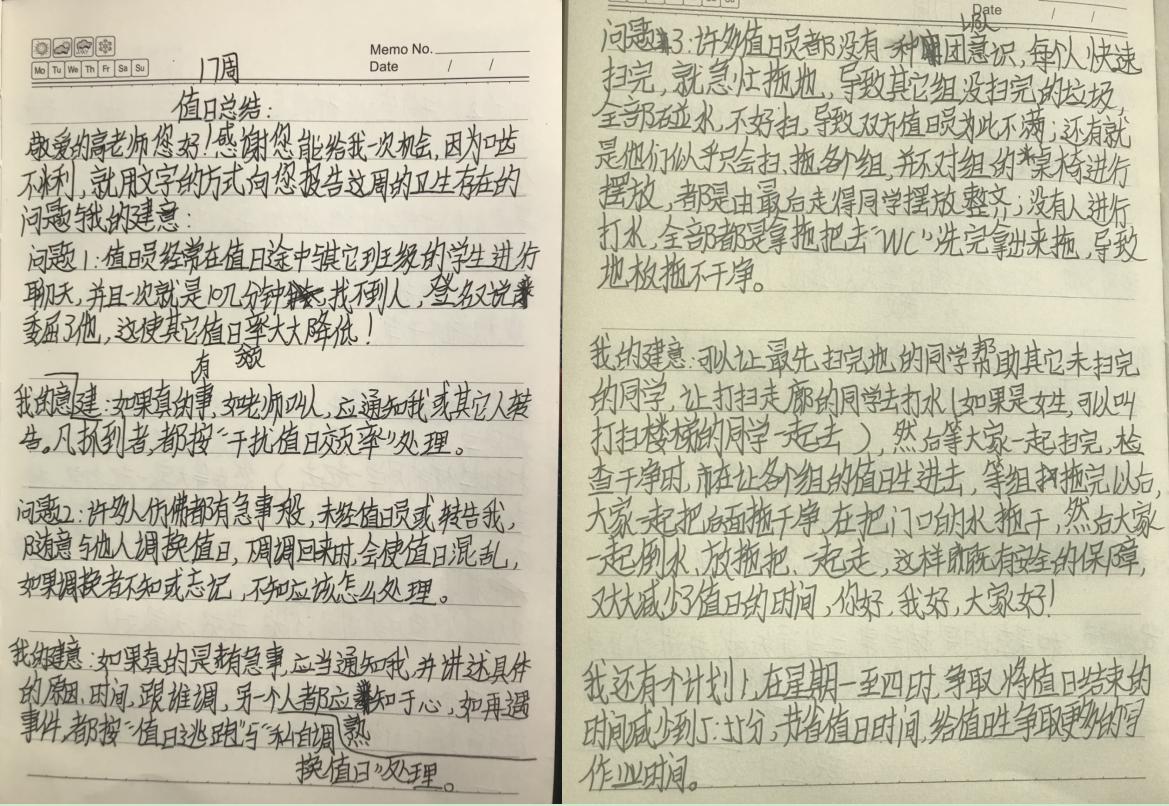 Memo No.
Mo Tu We Th Fr Sa Su
Date / /
17周
值日总结:
敬爱的高老师您好!感谢您能给我一次机会,因为口齿
不利,就用文字的方式向您报告这周的卫生存在的
问题与我的建意:
问题1:值日员经常在值日途中与其它班级的学生进行
聊天,并且一次就是10几分钟找不到人,登名又说
委屈了他,这使其它值日率大大降低!
有 效
我的意建:如果真的事,如老师叫人,应通知我或其它人转
告。凡抓到者,都按“干扰值日效率”处理。
问题2:许多人仿佛都有急事一般,未经值日员或转告我,
随意与他人调换值日,调回来时,会使值日混乱,
如果调换者不知或忘记,不知应该怎么处理。
我的建意:如果真的是有急事,应当通知我,并讲述具体
的原因、时间,跟谁调,另一个人都应知于心,如再遇
事件,都按“值日逃跑”与“私自调
熟
换值日”处理。
Date / /
团队
问题3:许多值日员都没有一种团意识,每个人快速
扫完,就急忙拖地,导致其它组没扫完的垃圾,
全部碰水,不好扫,导致双方值日员为此不满;还有就
是他们似乎只会扫、拖各个组,并不对组的桌椅进行
摆放,都是由最后走得同学摆放整齐;没有人进行
打水,全部都是拿拖把去“WC”洗完拿出来拖,导致
地板拖不干净。
我的建意:可以让最先扫完地的同学帮助其它未扫完
的同学,让打扫走廊的同学去打水(如果是女生,可以叫
打扫楼梯的同学一起去),然后等大家一起扫完,检
查干净时,在让各个组的值日生进去,等组拖完以后,
大家一起把后面拖干净,在把门口的水拖干,然后大家
一起倒水、放拖把、一起走,这样既有安全的保障,
又大大减少了值日的时间,你好,我好,大家好!
我还有个计划,在星期一至四时,争取将值日结束的
时间减少到5:55分,节省值日时间,给值日生争取更多的写
作业时间。